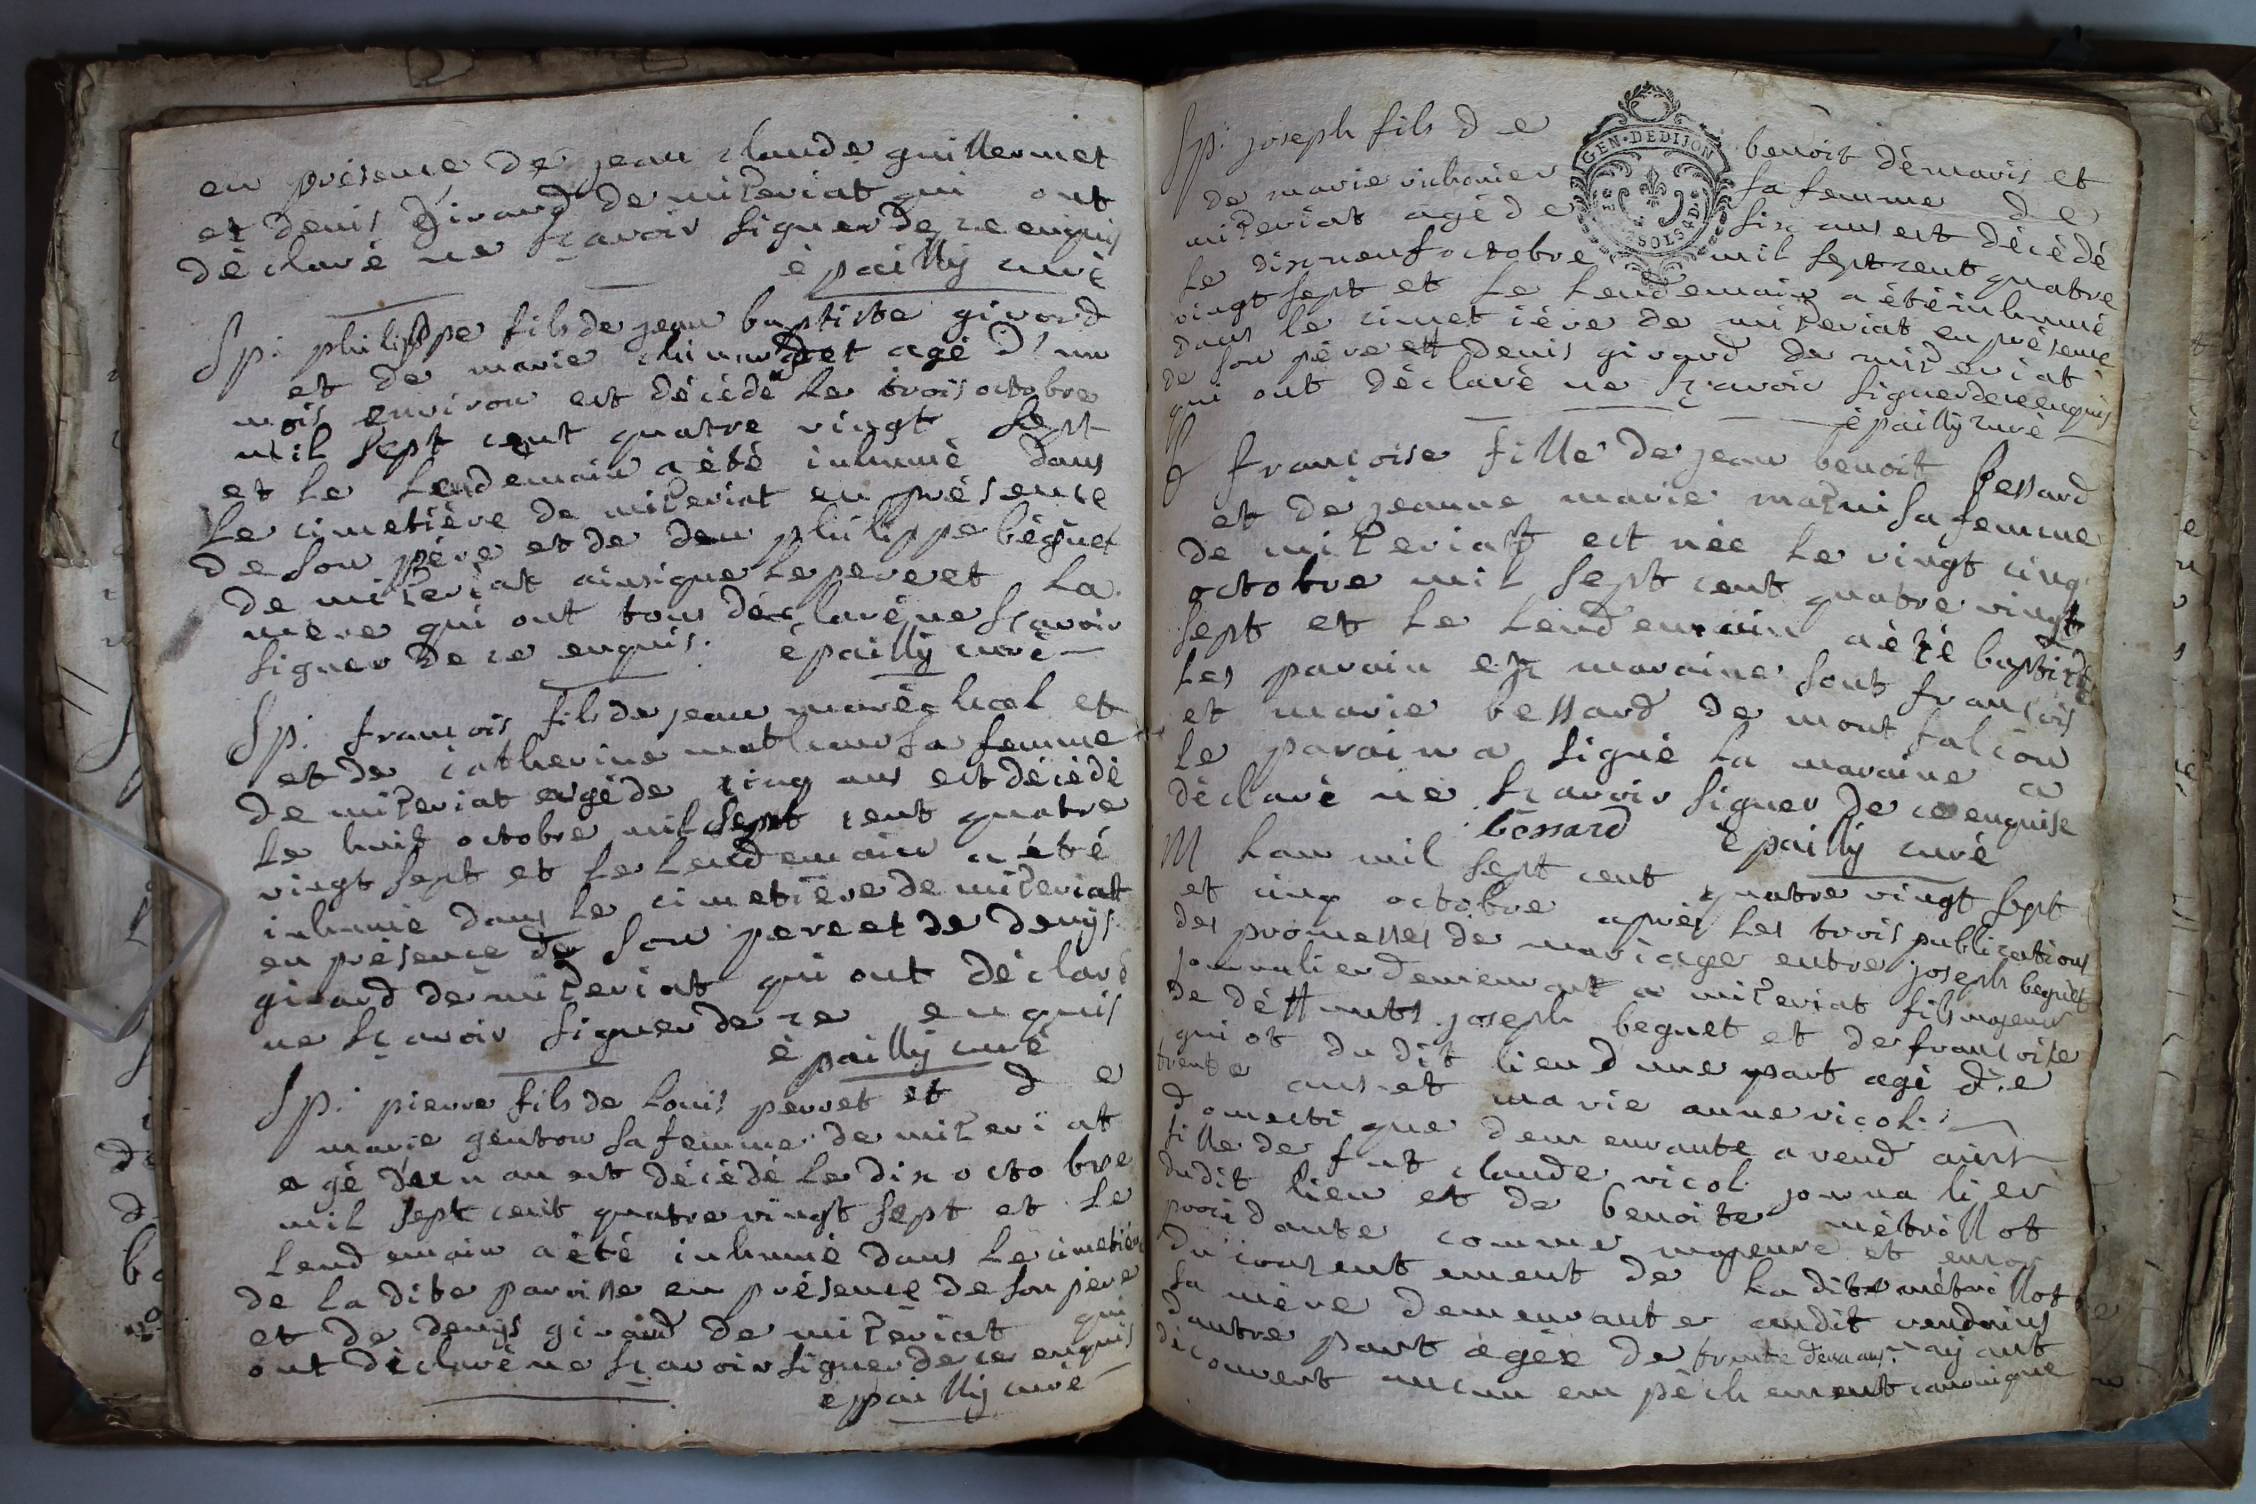 en présence de jean claude guillermet
et denis Girard de miseriat qui ont
déclaré ne sçavoir signer de ce enquis
épailly curé
Sp: philippe fils de jean baptiste givord
et de marie agé d'un
mois environ est décédé le trois octobre
mil sept cent quatre vingt sept
et le lendemain a été inhumé dans
le cimetière de miseriat en présence
de son père et de philippe béguet
de miseriat ainsi que le pere et la
mere qui ont tous déclaré ne sçavoir
signer de ce enquis. épailly curé
Sp: francois fils de jean maréchal et
et de catherine mathieu sa femme
de miseriat agé de cinq ans est décédé
le huit octobre mil sept cent quatre
vingt sept et le lendemain a été
inhumé dans le cimetière de miseriat
en présence de son pere et de denijs
girard de miseriat qui ont déclaré
ne sçavoir signer de ce enquis
épailly curé
Sp: pierre fils de louis perret et de
marie genton sa femme de miseriat
agé d'un an est décédé le dix octobre
mil sept cent quatre vingt sept et le
lendemain a été inhumé dans le cimetière
de la dite paroisse en présence de son père
et de denijs girard de miseriat qui
ont déclaré ne sçavoir signer de ce enquis
épailly curé
GEN·DEDIJON
SOLS
Sp: joseph fils de benoit démaris et
de marie richonier sa femme de
miseriat agé de six ans est décédé
le dix neuf octobre mil sept cent quatre
vingt sept et le lendemain a été inhumé
dans le cimetière de miseriat en présence
de son père et denis girard de miseriat
qui ont déclaré ne sçavoir signer de ce enquis
épailly curé
B francoise fille de jean benoit bessard
et de jeanne marie sa femme
de miseriat est née le vingt cinq
octobre mil sept cent quatre vingt
sept et le lendemain a été baptisée
les parain et maraine sont francois
et marie bessard de mont falcon
le parain a signé la maraine a
déclaré ne sçavoir signer de ce enquise
bessard épailly curé
M lan mil sept cent quatre vingt sept
et cinq octobre après les trois publications
des promesses de mariage entre joseph beguet
journalier demeurant a miseriat fils majeur
de déffunts joseph beguet et de francoise
quiot du dit lieu d une part agé de
trente ans et marie anne vicol
domestique demeurante a vend ains
fille de fut claude vicol journalier
dudit lieu et de benoite métrillot
procédante comme majeure et encor
du consentement de la dite métrillot
sa mère demeurante audit vendains
dautre part agée de trente deux ans nayant
découvert aucun empêchement canonique